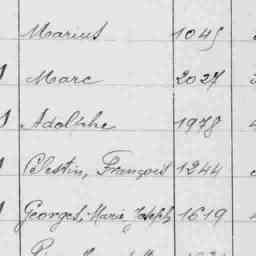 Marius 1045
Marc 2027
Adolphe 1978
Célestin, François 1244
Georges, Marie, Joseph 1619